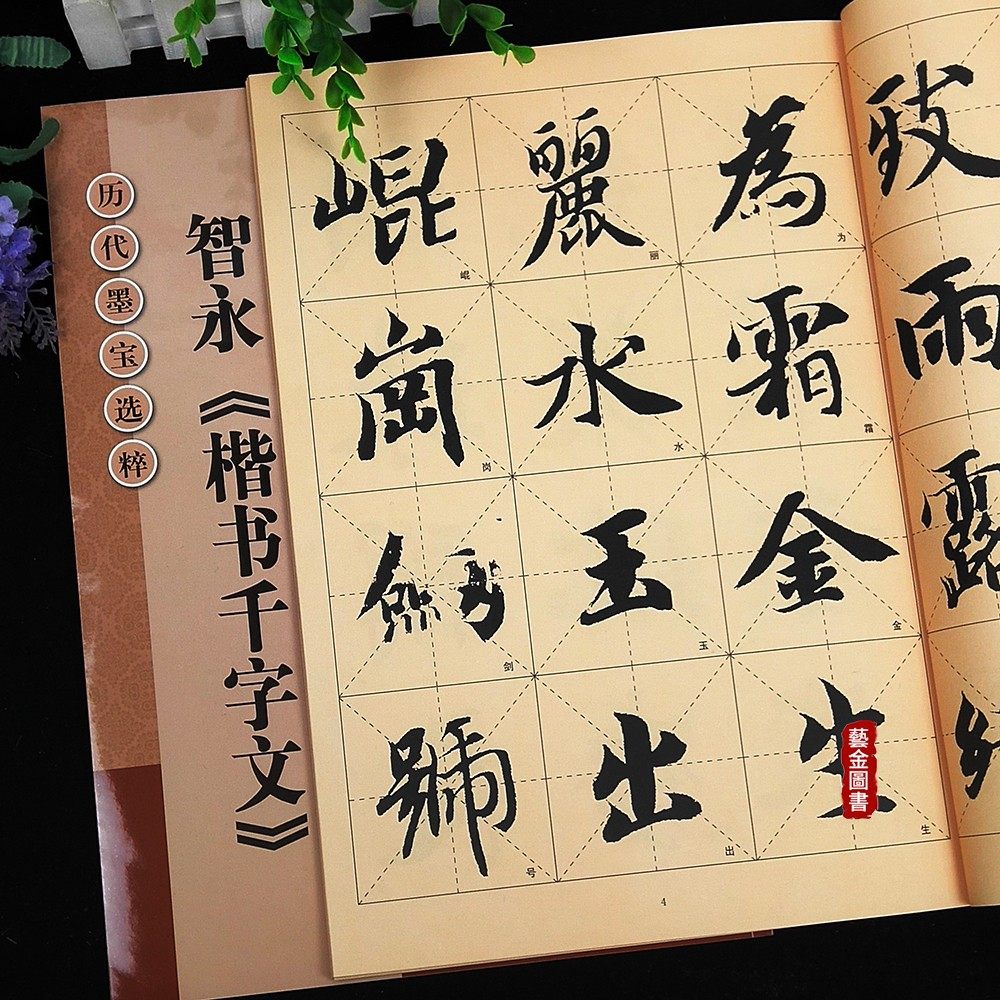 历代墨宝选粹
智永《楷书千字文》
致雨露
為霜金生
为霜金生
麗水玉出
丽水玉出
崐崗劒號
崐岗剑号
4
藝金圖書